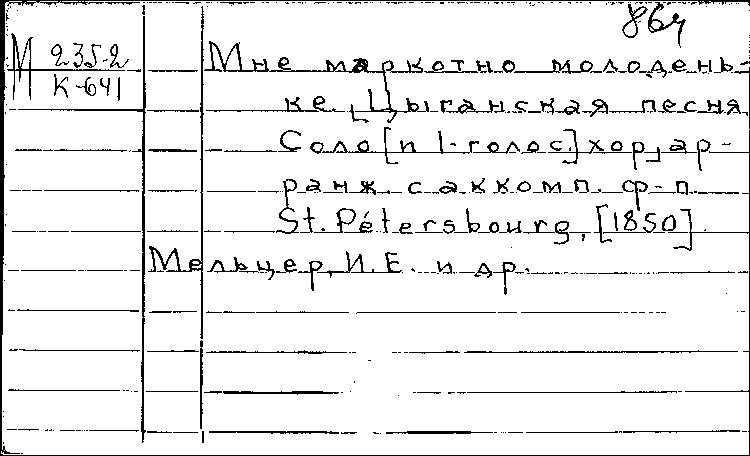 864
М 235-2
К-641
Мне маркотно молодень-
ке. [Цыганская песня.
Соло [и 1-голос.] хор], ар-
ранж. с аккомп. ф-п.
St. Pétersbourg, [1850].
Мельцер, И. Е. и др.